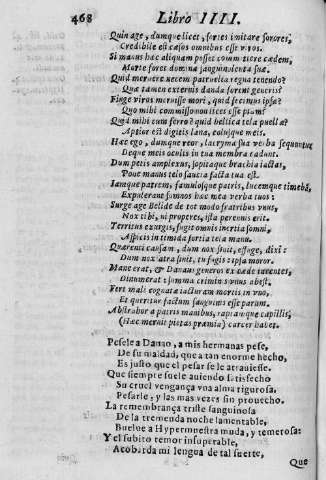 468 Libro IIII.
Quin age, dumque licet, fortes imitare sorores,
Credibile est cæsos omnibus esse viros.
Si manus hæc aliquam posset committere cædem,
Morte foret dominæ sanguinolenta suæ.
Quid meruere necem patruelia regna tenendo?
Quæ tamen externis danda forent generis?
Finge viros meruisse mori, quid fecimus ipsæ?
Quo mihi commisso non licet esse piam?
Quid mihi cum ferro? quid bellica tela puellæ?
Aptior est digitis lana, colusque meis.
Hæc ego, dumque queror, lacrymæ sua verba sequuntur
Deque meis oculis in tua membra cadunt.
Dum petis amplexus, sopitaque brachia iactas,
Pene manus telo saucia facta tua est.
Iamque patrem, famulosque patris, lucemque timebã,
Expulerant somnos hæc mea verba tuos:
Surge age Belide de tot modo fratribus vnus,
Nox tibi, ni properes, ista perennis erit.
Territus exurgis, fugit omnis inertia somni,
Aspicis in timida fortia tela manu.
Quærenti causam, dum nox sinit, effuge, dixi:
Dum nox atra sinit, tu fugis: ipsa moror.
Mane erat, & Danaus generos ex cæde iacentes,
Dinumerat: summa criminis vnus abest.
Fert male cognatæ iacturam mortis in vno,
Et queritur factum sanguinis esse parum.
Abstrahor a patrijs manibus, raptamque capillis,
(Hæc meruit pietas præmia) carcer habet.
Pesele a Danao, a mis hermanas pese,
De su maldad, que a tan enorme hecho,
Es justo que el pesar se le atrauiesse.
Que siempre suele auiendo satisfecho
Su cruel vengança voa alma rigurosa,
Pesarle, y las mas vezes sin prouecho.
La remembrança triste sanguinosa
De la tremenda noche lamentable,
Buelue a Hypermnestra muda, y temerosa:
Y el subito temor insuperable,
Acobarda mi lengua de tal suerte,
Que